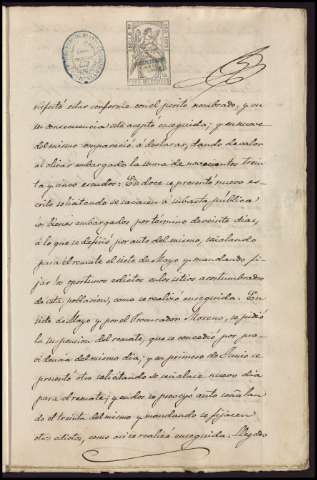 nifestó estar conforme con el perito nombrado, y en
su consecuencia este aceptó enseguida; y en nueve
del mismo compareció á declarar, dando de valor
al olivar embargado la suma de novecientos trein
ta y cinco escudos: En doce se presentó nuevo es
crito solicitando se sacasen á subasta pública
los bienes embargados por término de veinte dias,
á lo que se defirió por auto del mismo, señalando
para el remate el siete de Mayo y mandando fi-
jar los oportunos edictos en los sitios acostumbrados
de esta poblacion, como se realizó enseguida. En
siete de Mayo y por el Procurador Moreno, se pidió
la suspension del remate, que se concedió por pro-
videncia del mismo dia; y en primero de Junio se
presentó otro solicitando se señalase nuevo dia
para el remate; y en dos se proveyó auto señalan
do el treinta del mismo y mandando se fijasen
otros edictos, como asi se realizó enseguida. Llegado